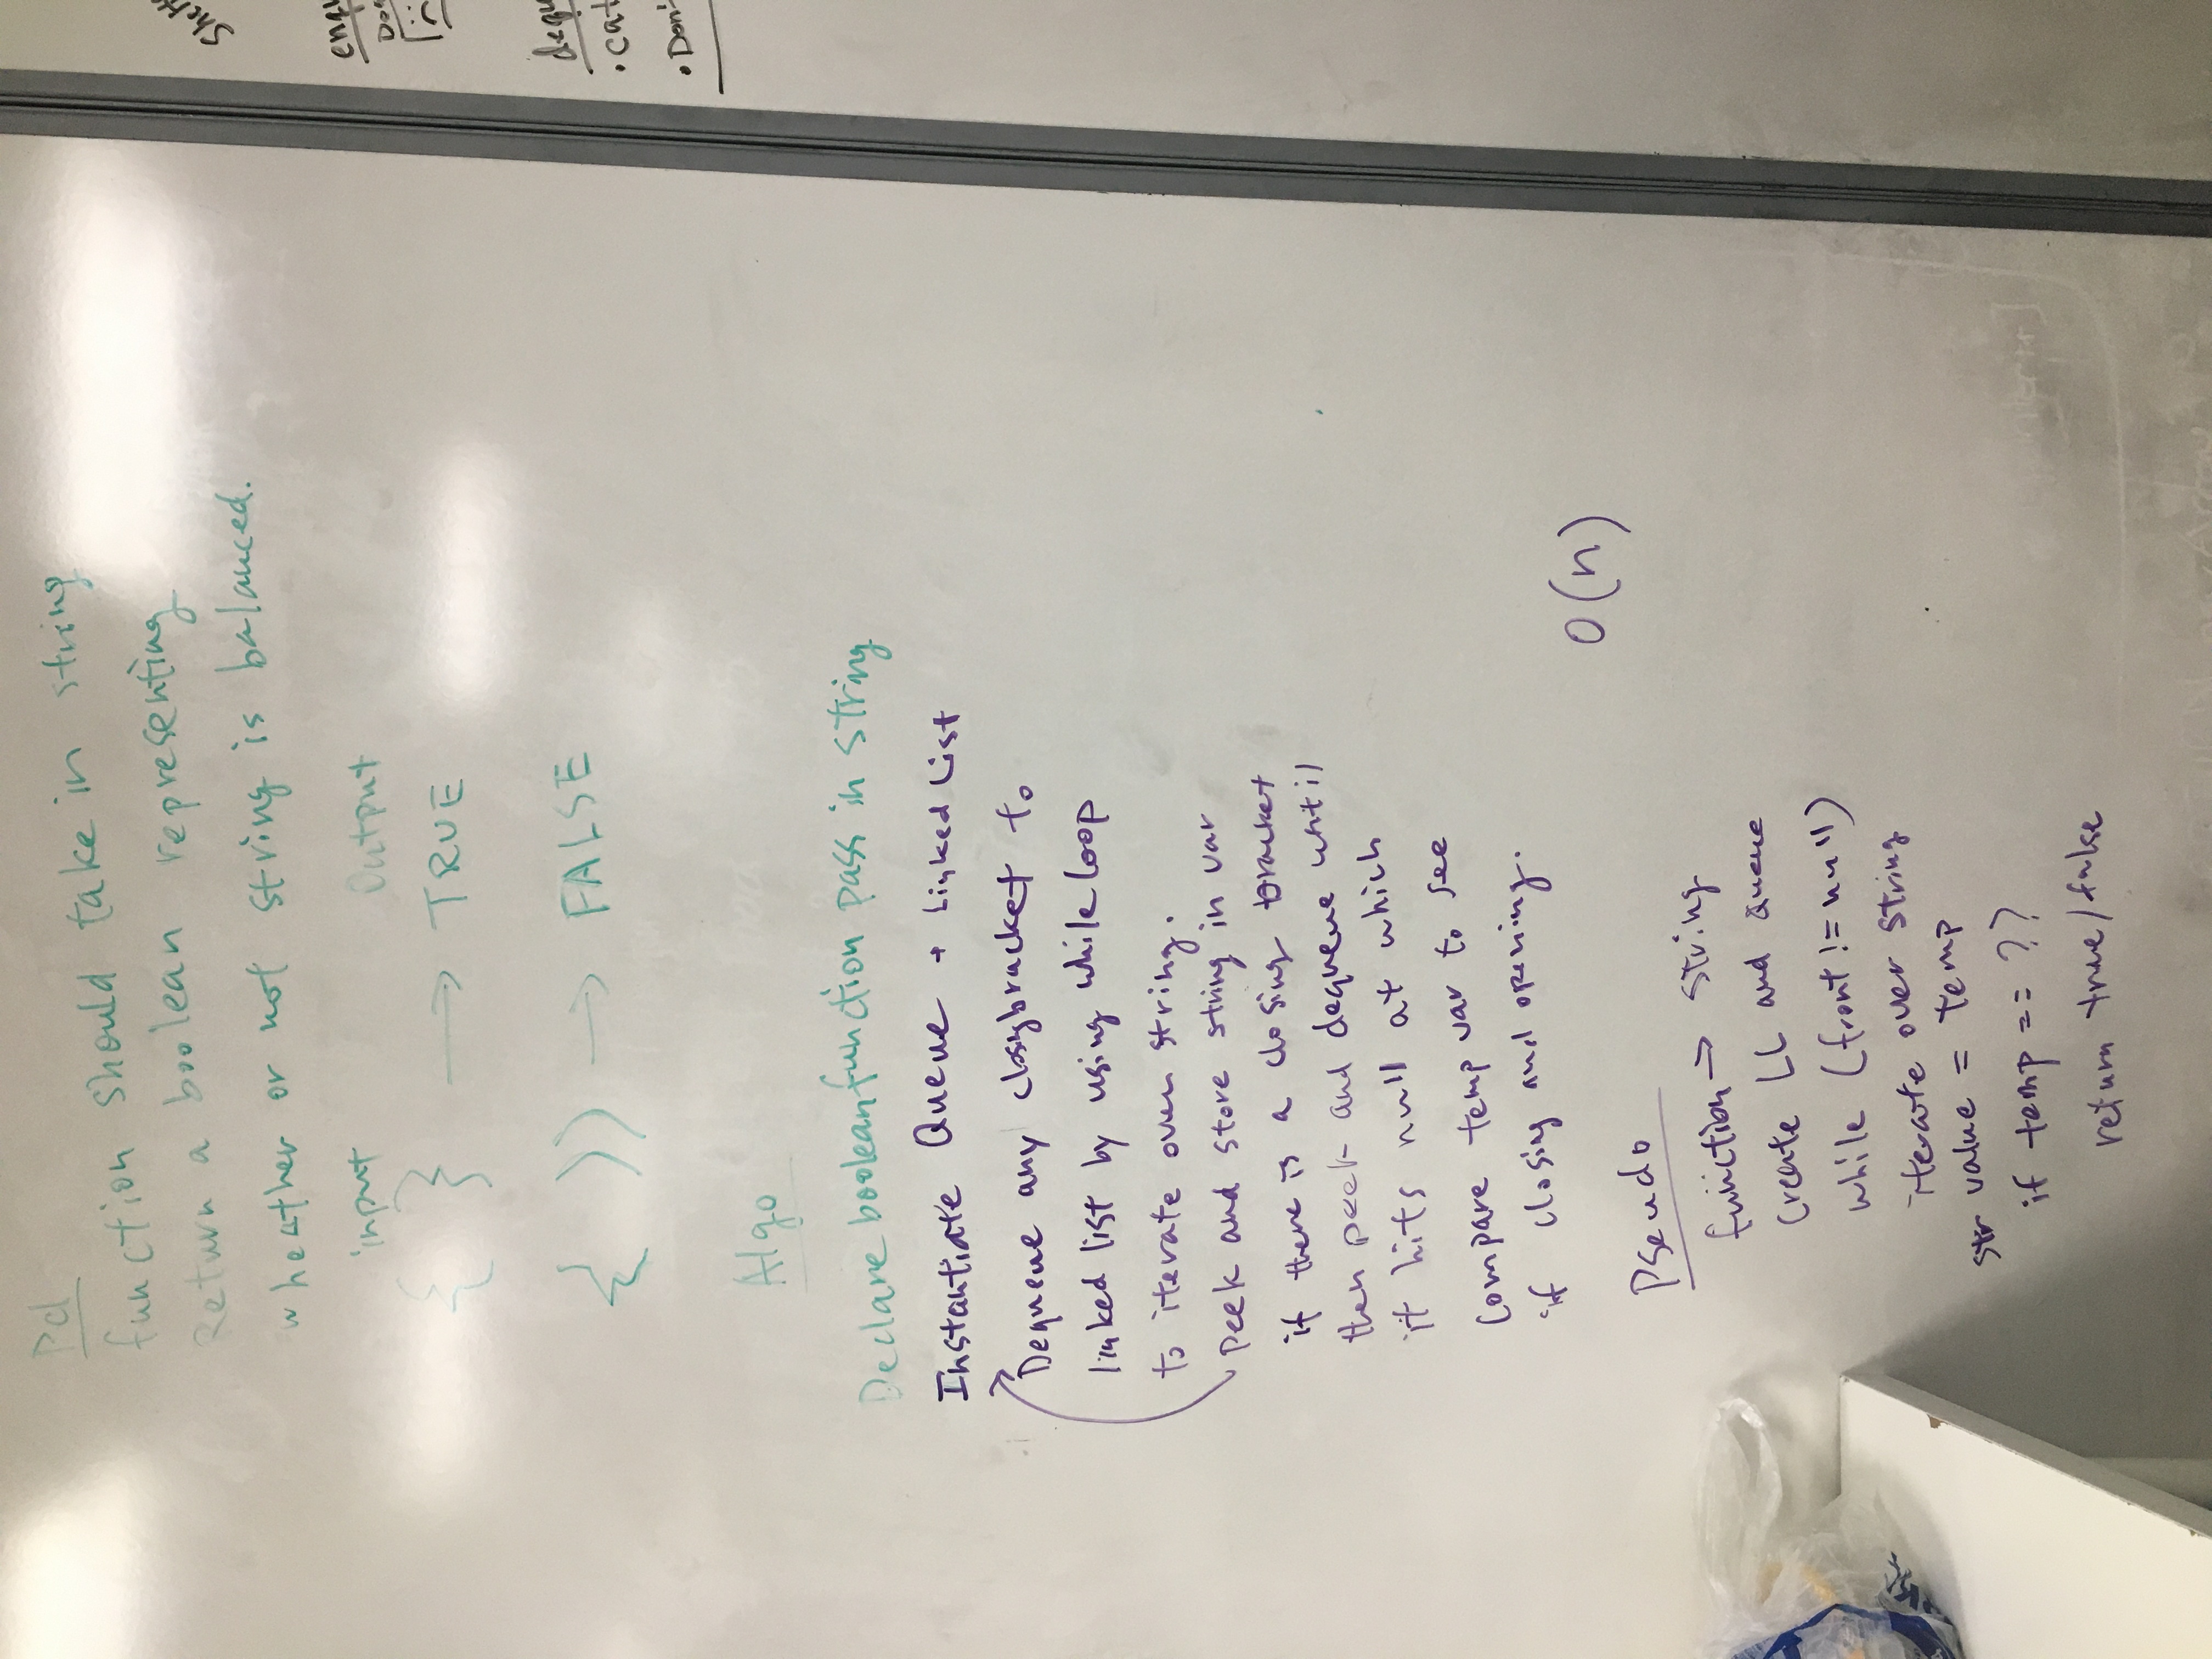 Pd
function should take in string
Return a boolean representing
wheather or not string is balanced.
input Output
{ } → TRUE
{ )) → FALSE
Algo
Declare boolean function pass in string
Instantiate Queue + Linked List
Dequeue any closing bracket to
linked list by using while loop
to iterate over string.
Peek and store string in var
if there is a closing bracket
then peek and dequeue until
it hits null at which
compare temp var to see
if closing and opening.
O(n)
Pseudo
function → string
Create LL and Queue
while (front != null)
iterate over string
str value = temp
if temp == ??
return true/false
enqu
dequ
• cat
• Don't